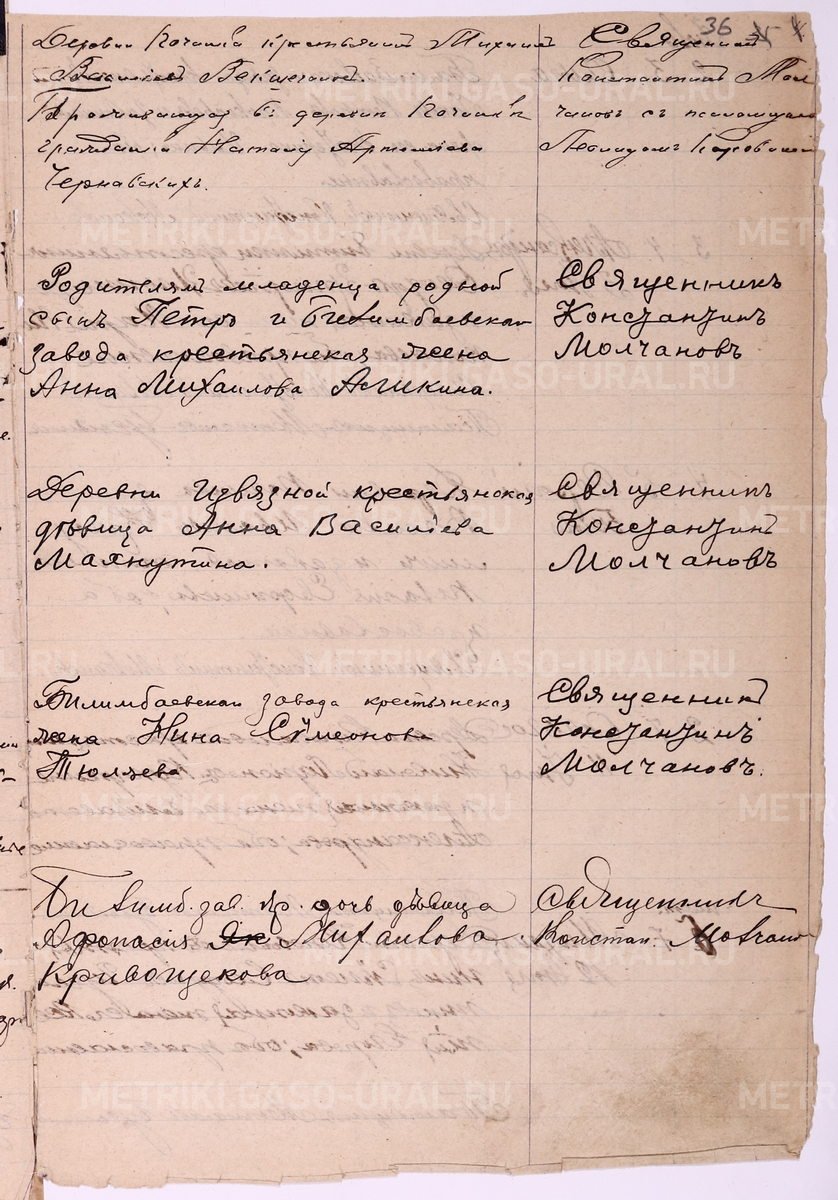 36
Деревни крестьянинъ Михаилъ
Василіевъ
Проживающая въ деревни
гражданка Артеміева
Чернавскихъ.
Священникъ
Константинъ Мол
чановъ съ псаломщикомъ
Родителямъ младенца родной
сынъ Петръ и Билимбаевскаго
завода крестьянская жена
Анна Михаилова
Священникъ
Константинъ
Молчановъ
Деревни Извязной крестьянская
дѣвица Анна Василіева
Махнутина.
Священникъ
Константинъ
Молчановъ
Билимбаевскаго завода крестьянская
жена Нина Сѵмеонова
Тюляева
Священникъ
Константинъ
Молчановъ.
Билимб. зав. кр. дочь дѣвица
Афонасія Як Михаилова
Кривощекова
Священникъ
Констан. Молчано
METRIKI.GASO-URAL.RU